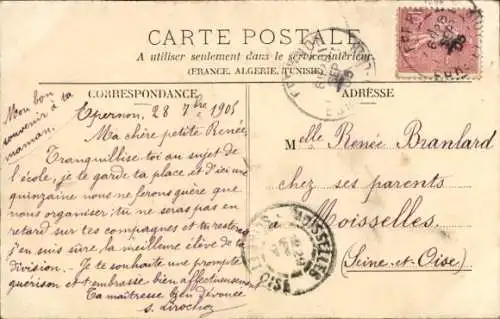 CARTE POSTALE
A utiliser seulement dans le service intérieur
(FRANCE, ALGERIE, TUNISIE)
CORRESPONDANCE
ADRESSE
Mon bon
souvenir à ta
maman.
Epernon. 28 7bre 1905
Ma chère petite Renée,
Tranquillise-toi au sujet de
l'école, je te garde ta place et d'ici une
quinzaine nous ne ferons guère que
nous organiser, tu ne seras pas en
retard sur tes compagnes et tu resteras
j'en suis sûre la meilleure élève de ta
division. Je te souhaite une prompte
guérison et t'embrasse bien affectueusement
Ta maîtresse bien dévouée
Melle Renée Branlard
chez ses parents
à Moisselles
(Seine-et-Oise)
MOISSELLES
OISE